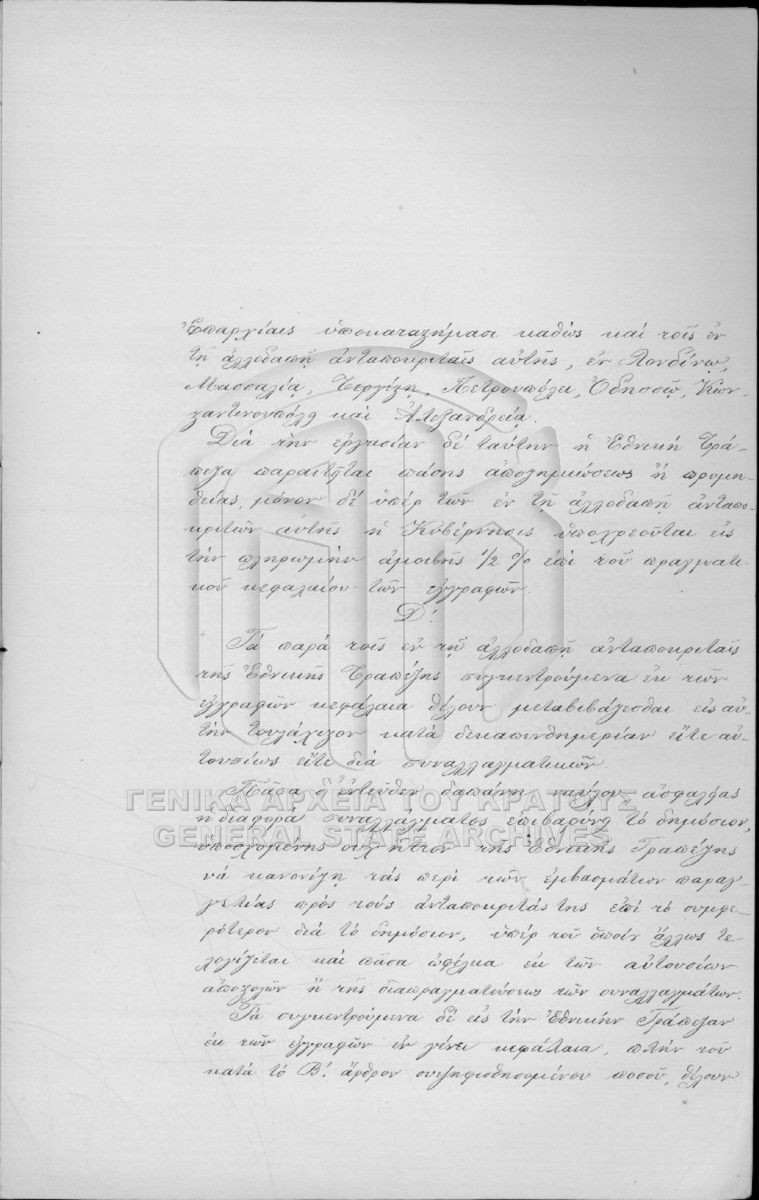 Ἐπαρχίαις ὑποκαταστήμασι καθὼς καὶ τοῖς ἐν
τῇ ἀλλοδαπῇ ἀνταποκριταῖς αὐτῆς, ἐν Λονδίνῳ,
Μασσαλίᾳ, Τεργέστῃ, Πετρουπόλει, Ὀδησσῷ, Κων-
σταντινουπόλῃ καὶ Ἀλεξανδρείᾳ.
Διὰ τὴν ἐργασίαν δὲ ταύτην ἡ Ἐθνικὴ Τρά-
πεζα παραιτεῖται πάσης ἀποζημιώσεως ἢ προμη-
θείας, μόνον δὲ ὑπὲρ τῶν ἐν τῇ ἀλλοδαπῇ ἀνταπο-
κριτῶν αὐτῆς ἡ Κυβέρνησις ὑποχρεοῦται εἰς
τὴν πληρωμὴν ἀμοιβῆς 1/2 % ἐπὶ τοῦ πραγματι-
κοῦ κεφαλαίου τῶν ἐγγραφῶν.
Δ!
Τὰ παρὰ τοῖς ἐν τῇ ἀλλοδαπῇ ἀνταποκριταῖς
τῆς Ἐθνικῆς Τραπέζης συγκεντρούμενα ἐκ τῶν
ἐγγραφῶν κεφάλαια θέλουν μεταβιβάζεσθαι εἰς αὐ-
τὴν τουλάχιστον κατὰ δεκαπενθημερίαν εἴτε αὐ-
τουσίως εἴτε διὰ συναλλαγματικῶν.
Πᾶσα δ' ἐντεῦθεν δαπάνη ναύλου ἀσφαλείας
ἢ διαφορὰ συναλλάγματος ἐπιβαρύνει τὸ δημόσιον,
ὑποσχομένης οὐχ ἧττον τῆς Ἐθνικῆς Τραπέζης
νὰ κανονίζῃ τὰς περὶ τῶν ἐμβασμάτων παραγ-
γελίας πρὸς τοὺς ἀνταποκριτάς της ἐπὶ τὸ συμφε-
ρότερον διὰ τὸ δημόσιον, ὑπὲρ τοῦ ὁποίου ἄλλως τε
λογίζεται καὶ πᾶσα ὠφέλεια ἐκ τῶν αὐτουσίων
ἀποστολῶν ἢ τῆς διαπραγματεύσεως τῶν συναλλαγμάτων.
Τὰ συγκεντρούμενα δὲ εἰς τὴν Ἐθνικὴν Τράπεζαν
ἐκ τῶν ἐγγραφῶν ἐν γένει κεφάλαια, πλὴν τοῦ
κατὰ τὸ Β! ἄρθρον συνεψηφισθησομένου ποσοῦ, θέλουν
ΓΕΝΙΚΑ ΑΡΧΕΙΑ ΤΟΥ ΚΡΑΤΟΥΣ
GENERAL STATE ARCHIVES